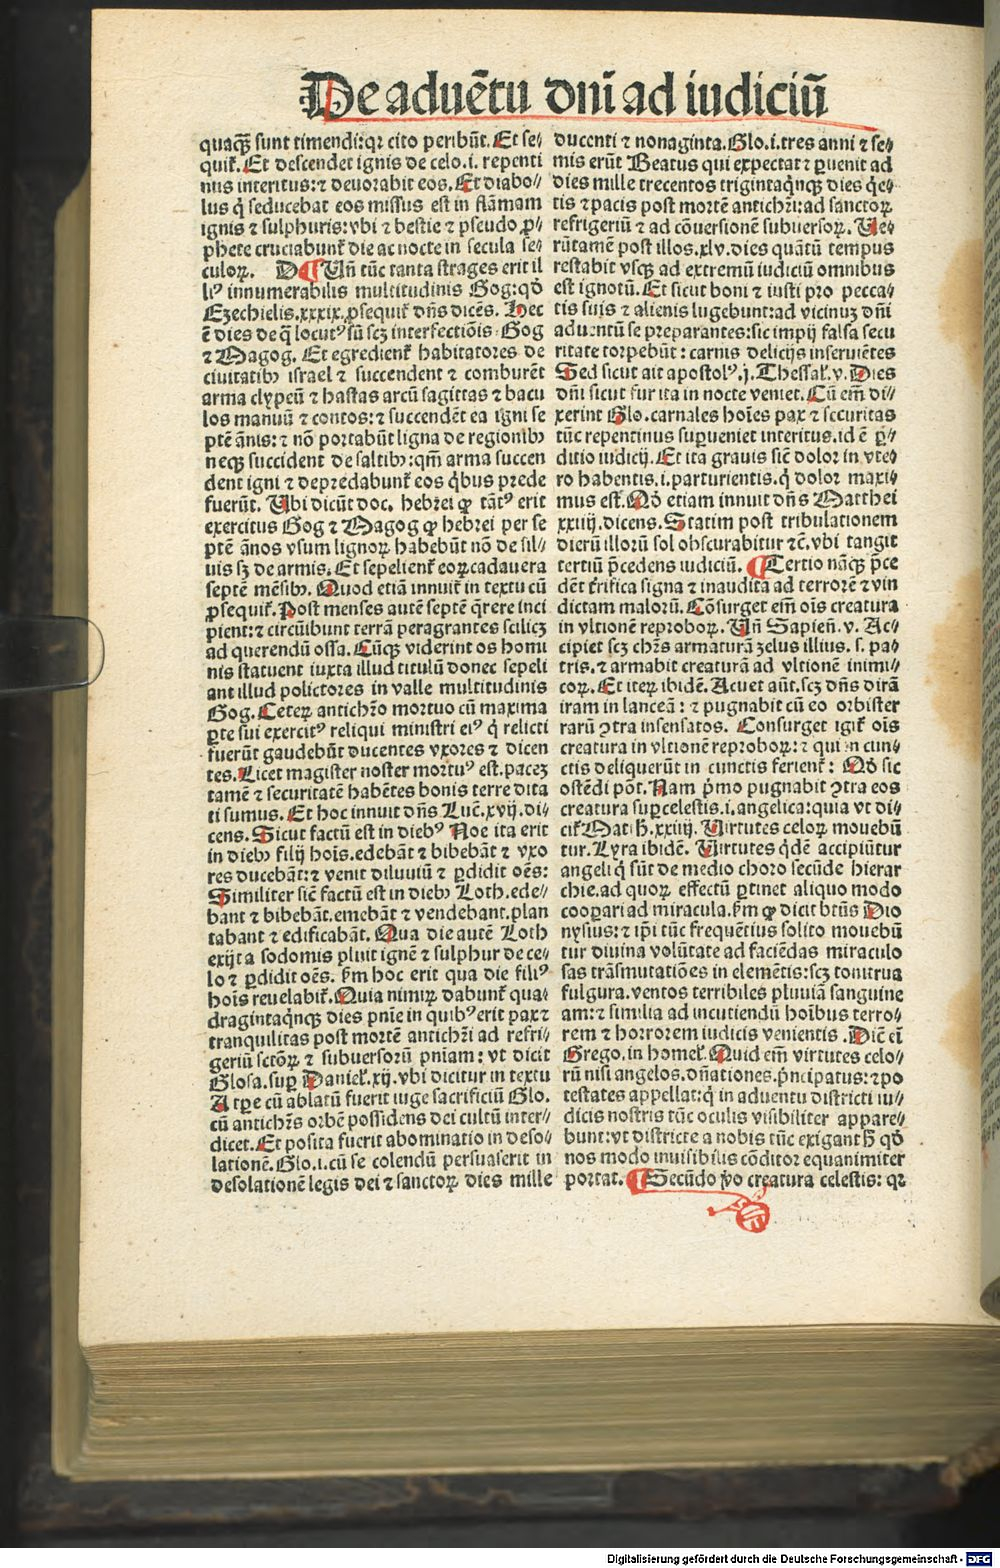 De aduētu dn̄i ad iudiciū
quaqꝫ sunt timendi:qꝛ cito peribūt. Et se⸗
quiť. Et descendet ignis de celo .i. repenti
nus interitus:⁊ deuorabit eos. Et diabo⸗
lus q̇ seducebat eos missus est in flāmam
ignis ⁊ sulphuris:vbi ⁊ bestie ⁊ pseudo ꝓ⸗
phete cruciabunť die ac nocte in secula se⸗
culoꝝ. D ¶ Un̄ tūc tanta strages erit il
liꝰ innumerabilis multitudinis Gog:qḋ
Ezechielis.xxxix.ꝓsequiť dn̄s dicēs. Hec
ē dies de q̄ locutꝰ sū scꝫ interfectiōis Gog
⁊ Magog. Et egredienť habitatores de
ciuitatibꝫ israel ⁊ succendent ⁊ comburēt
arma clypeū ⁊ hastas arcū sagittas ⁊ bacu
los manuū ⁊ contos:⁊ succendēt ea igni se
ptē ānis:⁊ nō portabūt ligna de regionibꝫ
neqꝫ succident de saltibꝫ:qm̄ arma succen
dent igni ⁊ depredabunť eos q̇bus prede
fuerūt. Ubi dicūt doc. hebrei ꝙ tātꝰ erit
exercitus Gog ⁊ Magog ꝙ hebrei per se
ptē ānos vsum lignoꝝ habebūt nō de sil⸗
uis sꝫ de armis. Et sepelienť eoꝝ cadauera
septē mēsibꝫ. Quod etiā innuiť in textu cū
ꝓsequiť. Post menses autē septē q̄rere inci
pient:⁊ circūibunt terrā peragrantes scilicꝫ
ad querendū ossa. Cūqꝫ viderint os homi
nis statuent iuxta illud titulū donec sepeli
ant illud polictores in valle multitudinis
Gog. Ceteꝝ antichr̄o mortuo cū maxima
ꝑte sui exercitꝰ reliqui ministri eiꝰ q̇ relicti
fuerūt gaudebūt ducentes vxores ⁊ dicen
tes. Licet magister noster mortuꝰ est.pacez
tamē ⁊ securitatē habētes bonis terre dita
ti sumus. Et hoc innuit dn̄s Luč.xvij.di⸗
cens. Sicut factū est in diebꝰ Noe ita erit
in diebꝫ filij hoīs.edebāt ⁊ bibebāt ⁊ vxo
res ducebāt:⁊ venit diluuiū ⁊ ꝑdidit oēs:
Similiter sič factū est in diebꝫ Loth.ede⸗
bant ⁊ bibebāt.emebāt ⁊ vendebant.plan
tabant ⁊ edificabāt. Qua die autē Loth
exijt a sodomis pluit ignē ⁊ sulphur de ce⸗
lo ⁊ ꝑdidit oēs. ẜm hoc erit qua die filiꝰ
hoīs reuelabiť. Quia nimiꝝ dabunť qua⸗
dragintaq̇nqꝫ dies pnīe in quibꝰ erit pax ⁊
tranquilitas post mortē antichr̄i ad refri⸗
geriū sctōꝝ ⁊ subuersorū pniam: vt dicit
Glosa.suꝑ Danieľ.xij.vbi dicitur in textu
A tꝑe cū ablatū fuerit iuge sacrificiū Glo.
cū antichr̄s orbē possidens dei cultū inter⸗
dicet. Et posita fuerit abominatio in deso⸗
lationē. Glo.i.cū se colendū persuaserit in
desolationē legis dei ⁊ sanctoꝝ dies mille
ducenti ⁊ nonaginta. Glo.i.tres anni ⁊ se⸗
mis erūt Beatus qui expectat ⁊ ꝑuenit ad
dies mille trecentos trigintaq̇nqꝫ dies q̇e⸗
tis ⁊ pacis post mortē antichr̄i:ad sanctoꝝ
refrigeriū ⁊ ad cōuersionē subuersoꝝ. Ue⸗
rūtamē post illos.xlv.dies quātū tempus
restabit vsqꝫ ad extremū iudiciū omnibus
est ignotū. Et sicut boni ⁊ iusti pro pecca⸗
tis suis ⁊ alienis lugebunt:ad vicinuz dn̄i
aduentū se preparantes:sic impij falsa secu
ritate torpebūt : carnis delicijs inseruiētes
Sed sicut ait apostolꝰ.j. Thessaľ.v. Dies
dn̄i sicut fur ita in nocte veniet. Cū em̄ di⸗
xerint Glo.carnales hoīes pax ⁊ securitas
tūc repentinus suꝑueniet interitus.id ē ꝑ⸗
ditio iudicij. Et ita grauis sič dolor in vte⸗
ro habentis.i.parturientis.q̇ dolor maxi⸗
mus est. Qḋ etiam innuit dn̄s Matthei
xxiiij.dicens. Statim post tribulationem
dierū illorū sol obscurabitur ⁊č.vbi tangit
tertiū p̄cedens iudiciū. ¶ Tertio nāqꝫ p̄ce
dēt ťrifica signa ⁊ inaudita ad terrorē ⁊ vin
dictam malorū. Cōsurget em̄ oīs creatura
in vltionē reproboꝝ. Un̄ Sapien̄.v. Ac⸗
cipiet scꝫ chr̄s armaturā zelus illius. s. pa⸗
tris.⁊ armabit creaturā ad vltionē inimi⸗
coꝝ. Et iteꝝ ibidē. Acuet aūt.scꝫ dn̄s dirā
iram in lanceā : ⁊ pugnabit cū eo orbister
rarū ꝯtra insensatos. Consurget igiť oīs
creatura in vltionē reproboꝝ:⁊ qui in cun⸗
ctis deliquerūt in cunctis ferienť: Qḋ sic
ostēdi pōt. Nam p̄mo pugnabit ꝯtra eos
creatura suꝑcelestis.i.angelica:quia vt di⸗
ciť Matħ.xxiiij. Uirtutes celoꝝ mouebū
tur. Lyra ibidē. Uirtutes q̇dē accipiūtur
angeli q̇ sūt de medio choro secūde hierar
chie.ad quoꝝ effectū ꝑtinet aliquo modo
cooꝑari ad miracula.ẜm ꝙ dicit btūs Dio
nysius:⁊ ip̄i tūc frequētius solito mouebū
tur diuina volūtate ad faciēdas miraculo
sas trāsmutatiōes in elemētis:scꝫ tonitrua
fulgura.ventos terribiles pluuiā sanguine
am:⁊ similia ad incutiendū hoībus terro⸗
rem ⁊ horrorem iudicis venientis . Dič eī
Grego.in homeľ. Quid em̄ virtutes celo⸗
rū nisi angelos.dn̄ationes.p̄ncipatus:⁊ po
testates appellat:q̇ in aduentu districti iu⸗
dicis nostris tūc oculis visibiliter appare⸗
bunt:vt districte a nobis tūc exigant ħ qḋ
nos modo inuisibilis cōditor equanimiter
portat. ¶ Secūdo ṽo creatura celestis: qꝛ
Digitalisierung gefördert durch die Deutsche Forschungsgemeinschaft - DFG